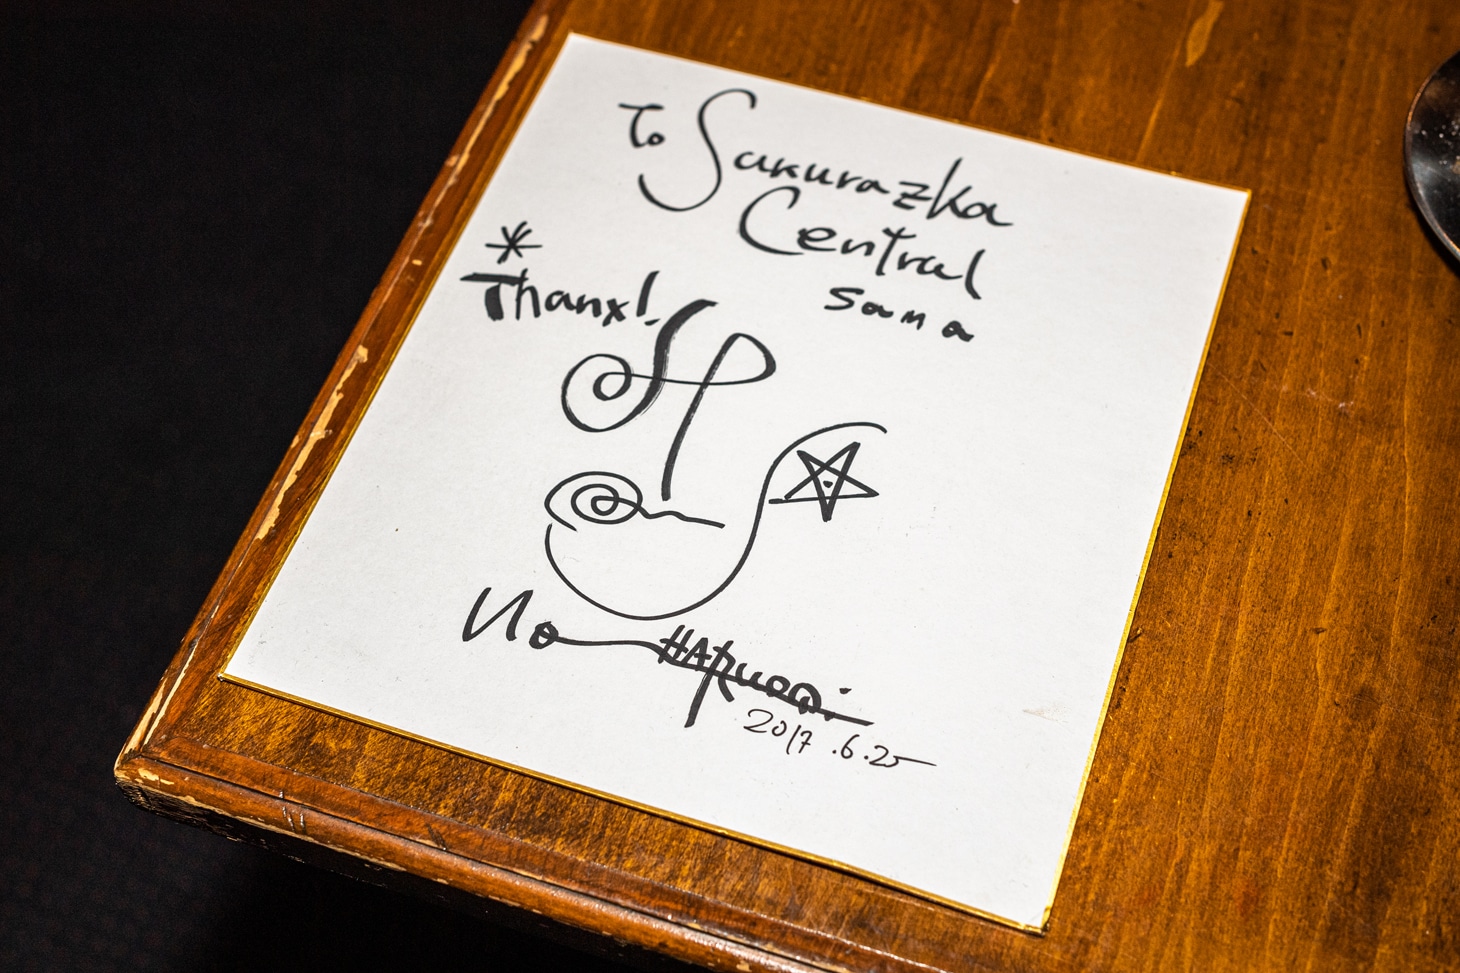 To Sakurazka
Central
sama
* Thanx!
2017.6.25